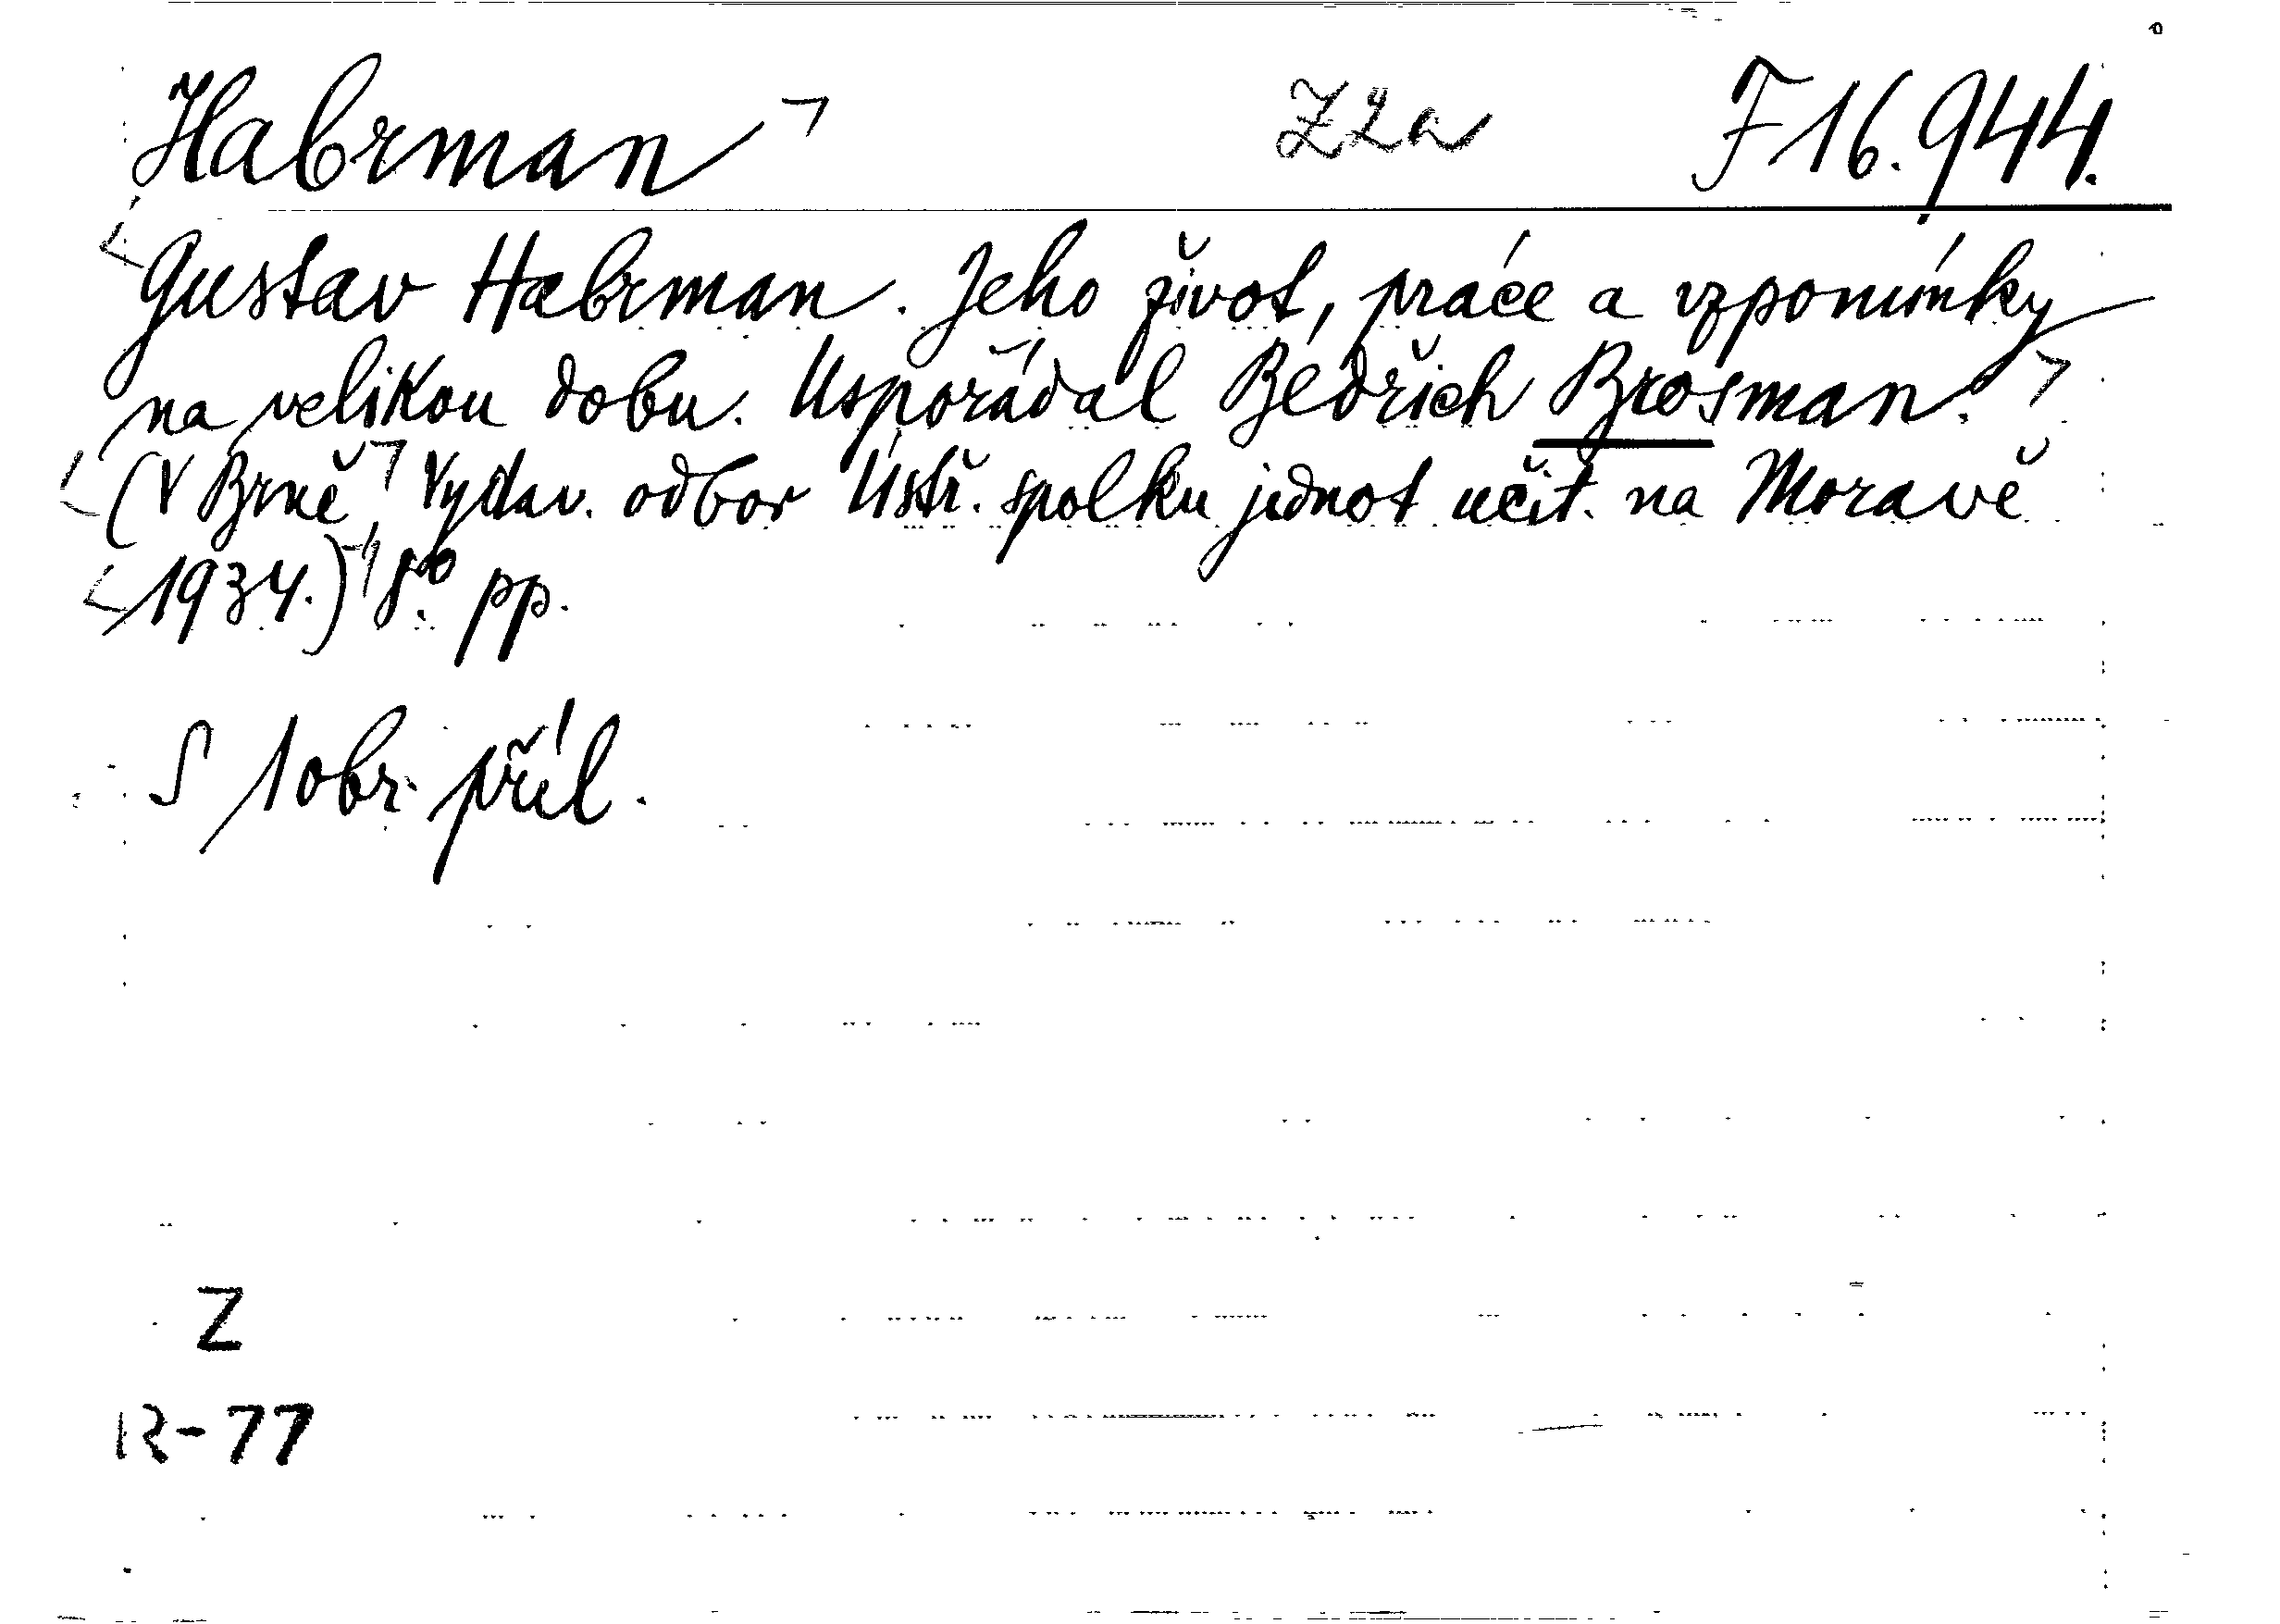 Habrman Z2a F 16.944.
Gustav Habrman. Jeho život, práce a vzpomínky
na velikou dobu. Uspořádal Bedřich Brosman.
(V Brně, Vydav. odbor Ústř. spolku jednot učit. na Moravě
1934.) 8° pp.
S 1 obr. příl.
Z
R-77